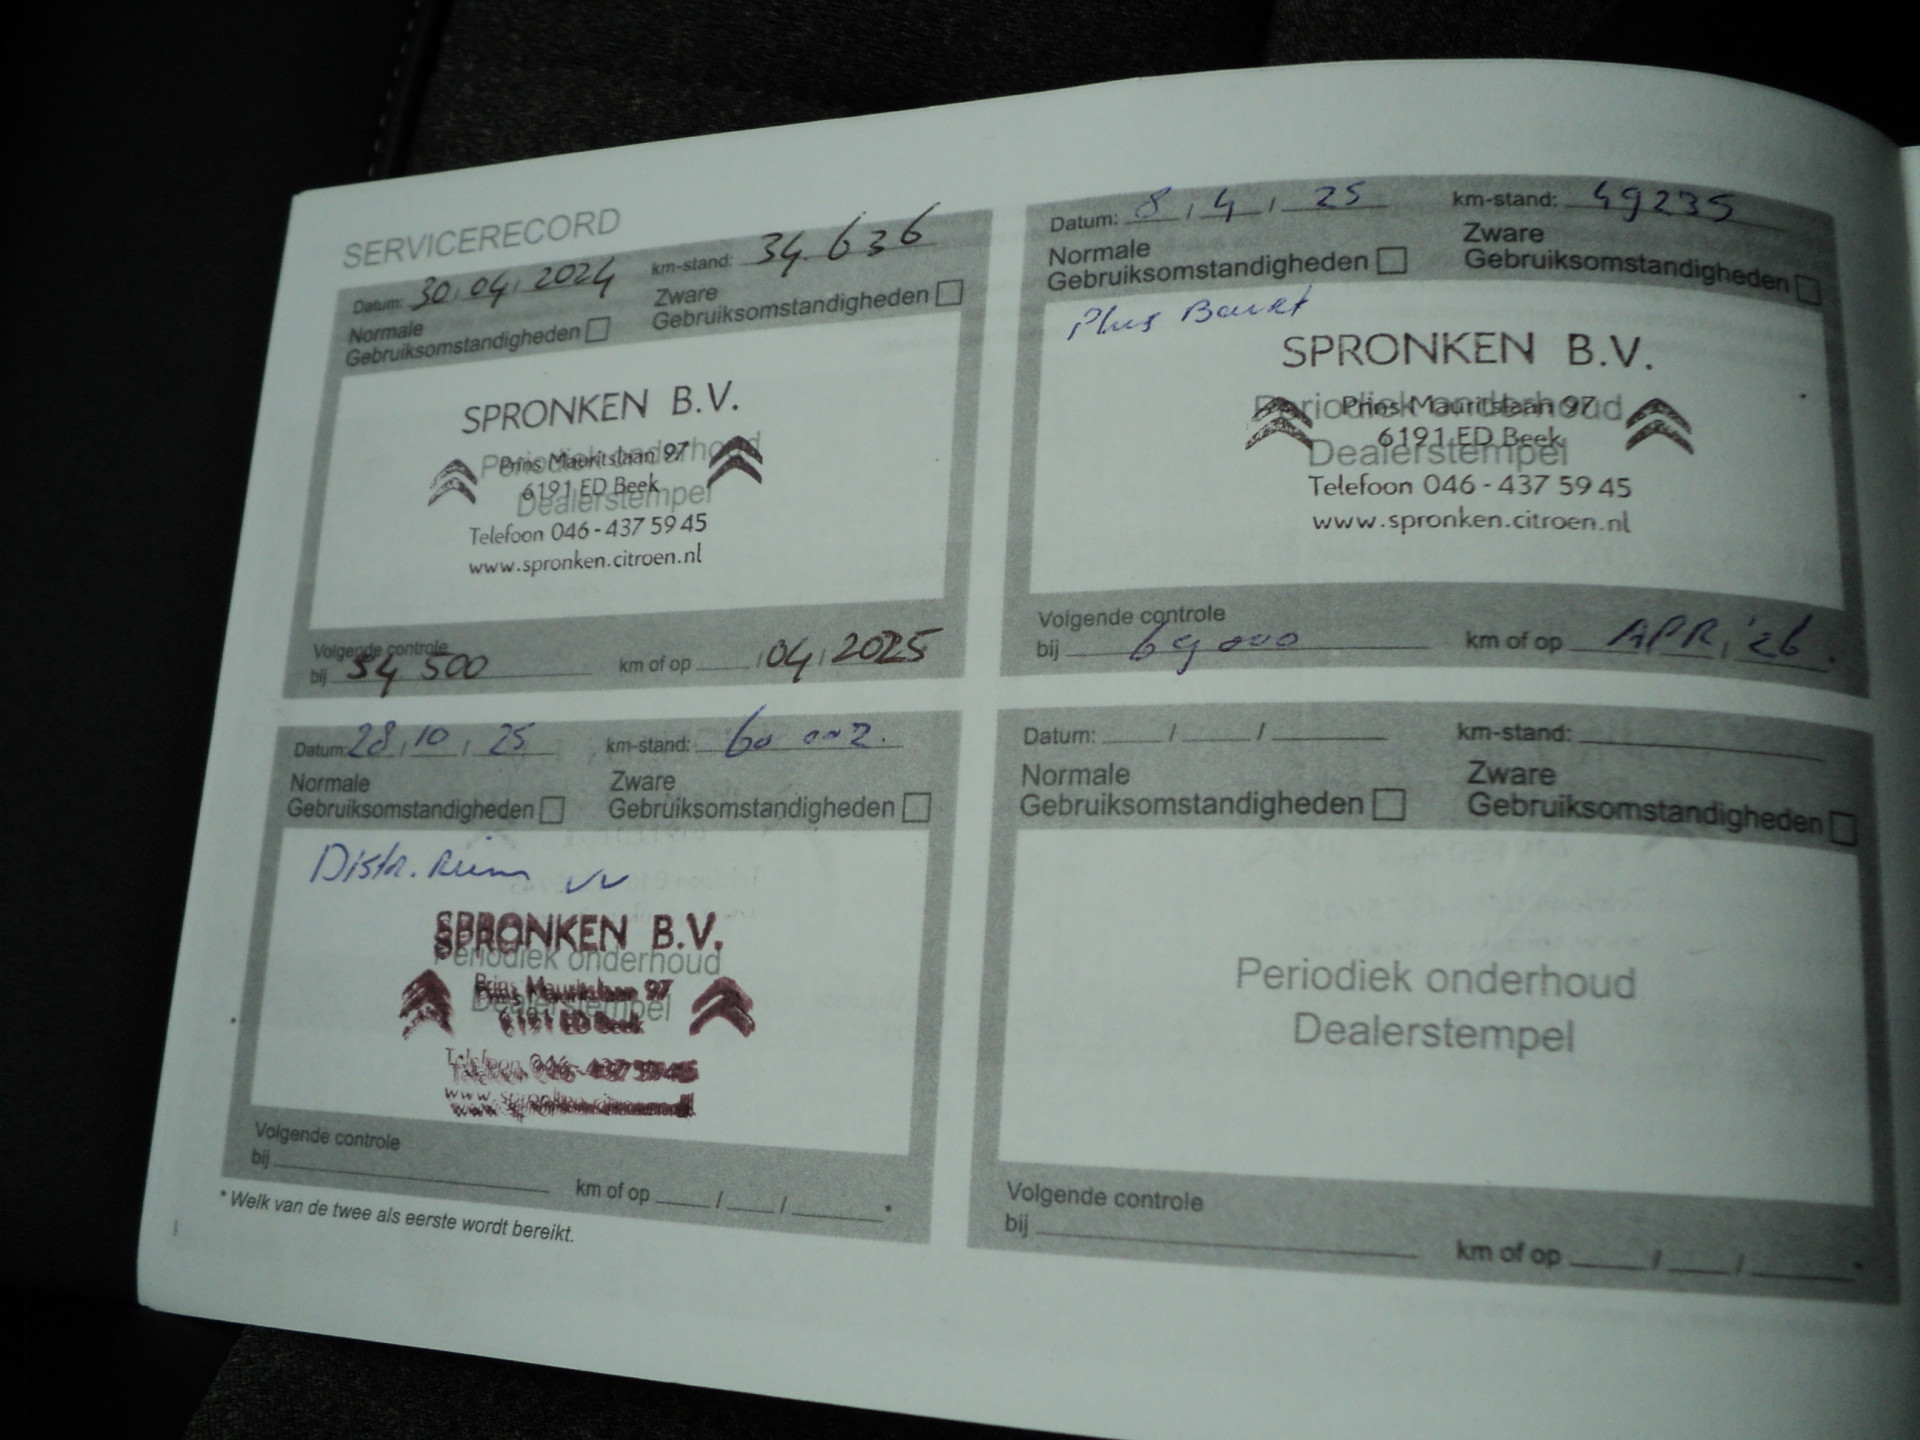 SERVICERECORD
Datum: 30 / 04 / 2024 km-stand: 34.636
Normale Gebruiksomstandigheden
Zware Gebruiksomstandigheden
SPRONKEN B.V.
Periodiek onderhoud
Prins Mauritslaan 97
6191 ED Beek
Dealerstempel
Telefoon 046-437 59 45
www.spronken.citroen.nl
Volgende controle
bij 54 500 km of op / 04 / 2025
Datum: 8 / 4 / 25 km-stand: 49235
Normale Gebruiksomstandigheden
Zware Gebruiksomstandigheden
Plus
SPRONKEN B.V.
Periodiek onderhoud
Prins Mauritslaan 97
6191 ED Beek
Dealerstempel
Telefoon 046-437 59 45
www.spronken.citroen.nl
Volgende controle
bij 69000 km of op APR, '26.
Datum: 28 / 10 / 25 km-stand: 60 002.
Normale Gebruiksomstandigheden
Zware Gebruiksomstandigheden
Distr. Riem vv
SPRONKEN B.V.
Periodiek onderhoud
Prins Mauritslaan 97
Dealerstempel
6191 ED Beek
Telefoon 046-437 59 45
www.spronken.citroen.nl
Volgende controle
bij km of op / / *
* Welk van de twee als eerste wordt bereikt.
Datum: / / km-stand:
Normale Gebruiksomstandigheden
Zware Gebruiksomstandigheden
Periodiek onderhoud
Dealerstempel
Volgende controle
bij km of op / / *